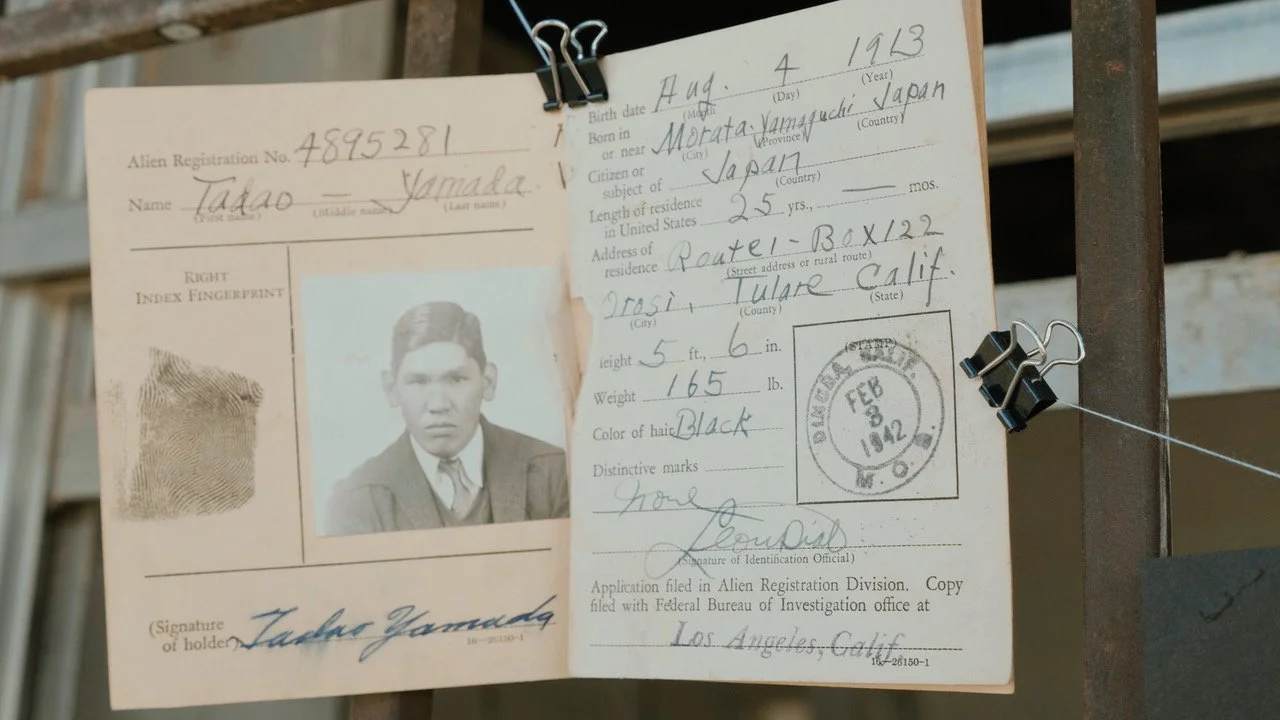 Alien Registration No. 4895281
Name Tadao — Yamada
(First name) (Middle name) (Last name)
RIGHT
INDEX FINGERPRINT
(Signature
of holder) Tadao Yamada
16—26150-1
Birth date Aug. 4 1913
(Month) (Day) (Year)
Born in
or near Morata Yamaguchi Japan
(City) (Province) (Country)
Citizen or
subject of Japan
(Country)
Length of residence
in United States 25 yrs., — mos.
Address of
residence Route 1 - Box 122
(Street address or rural route)
Orosi, Tulare Calif.
(City) (County) (State)
eight 5 ft., 6 in.
Weight 165 lb.
Color of hair Black
Distinctive marks
None
(STAMP)
DINUBA, CALIF.
FEB
3
1942
M. O. B.
(Signature of Identification Official)
Application filed in Alien Registration Division. Copy
filed with Federal Bureau of Investigation office at
Los Angeles, Calif.
16—26150-1